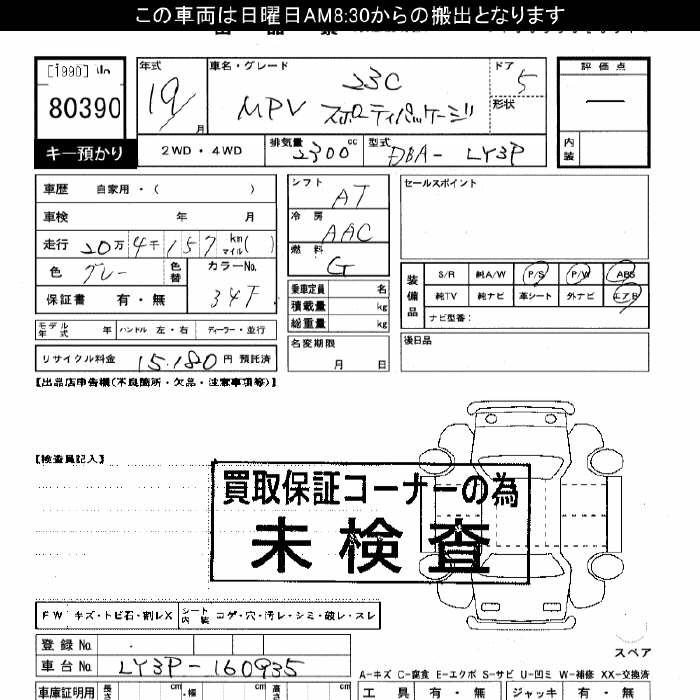 この車両は日曜日AM8:30からの搬出となります
[1990]
80390
キー預かり
年式
19
月
車名・グレード
23C
MPV スポーティパッケージ
ドア
5
形状
評価点
—
内装
2WD・4WD
排気量
2300
cc
型式
DBA- LY3P
車歴 自家用・( )
車検 年 月
走行 20万4千157 km マイル( )
色 グレー
色替
カラーNo.
34F
保証書 有・無
シフト
AT
冷房
AAC
燃料
G
乗車定員 名
積載量 kg
総重量 kg
セールスポイント
装備品
S/R 純A/W P/S P/W ABS
純TV 純ナビ 革シート 外ナビ エアB
ナビ型番:
モデル年式 年
ハンドル 左・右
ディーラー・並行
リサイクル料金 15.180 円 預託済
名変期限
月 日
後日品
【出品店申告欄(不良箇所・欠品・注意事項等)】
【検査員記入】
買取保証コーナーの為
未検査
FW キズ・トビ石・割レX
シート内装 コゲ・穴・汚レ・シミ・破レ・スレ
登録No.
車台No. LY3P-160935
スペア
A-キズ C-腐食 E-エクボ S-サビ U-凹ミ W-補修 XX-交換済
車庫証明用 長さ cm 幅 cm 高さ cm
工具 有・無 ジャッキ 有・無